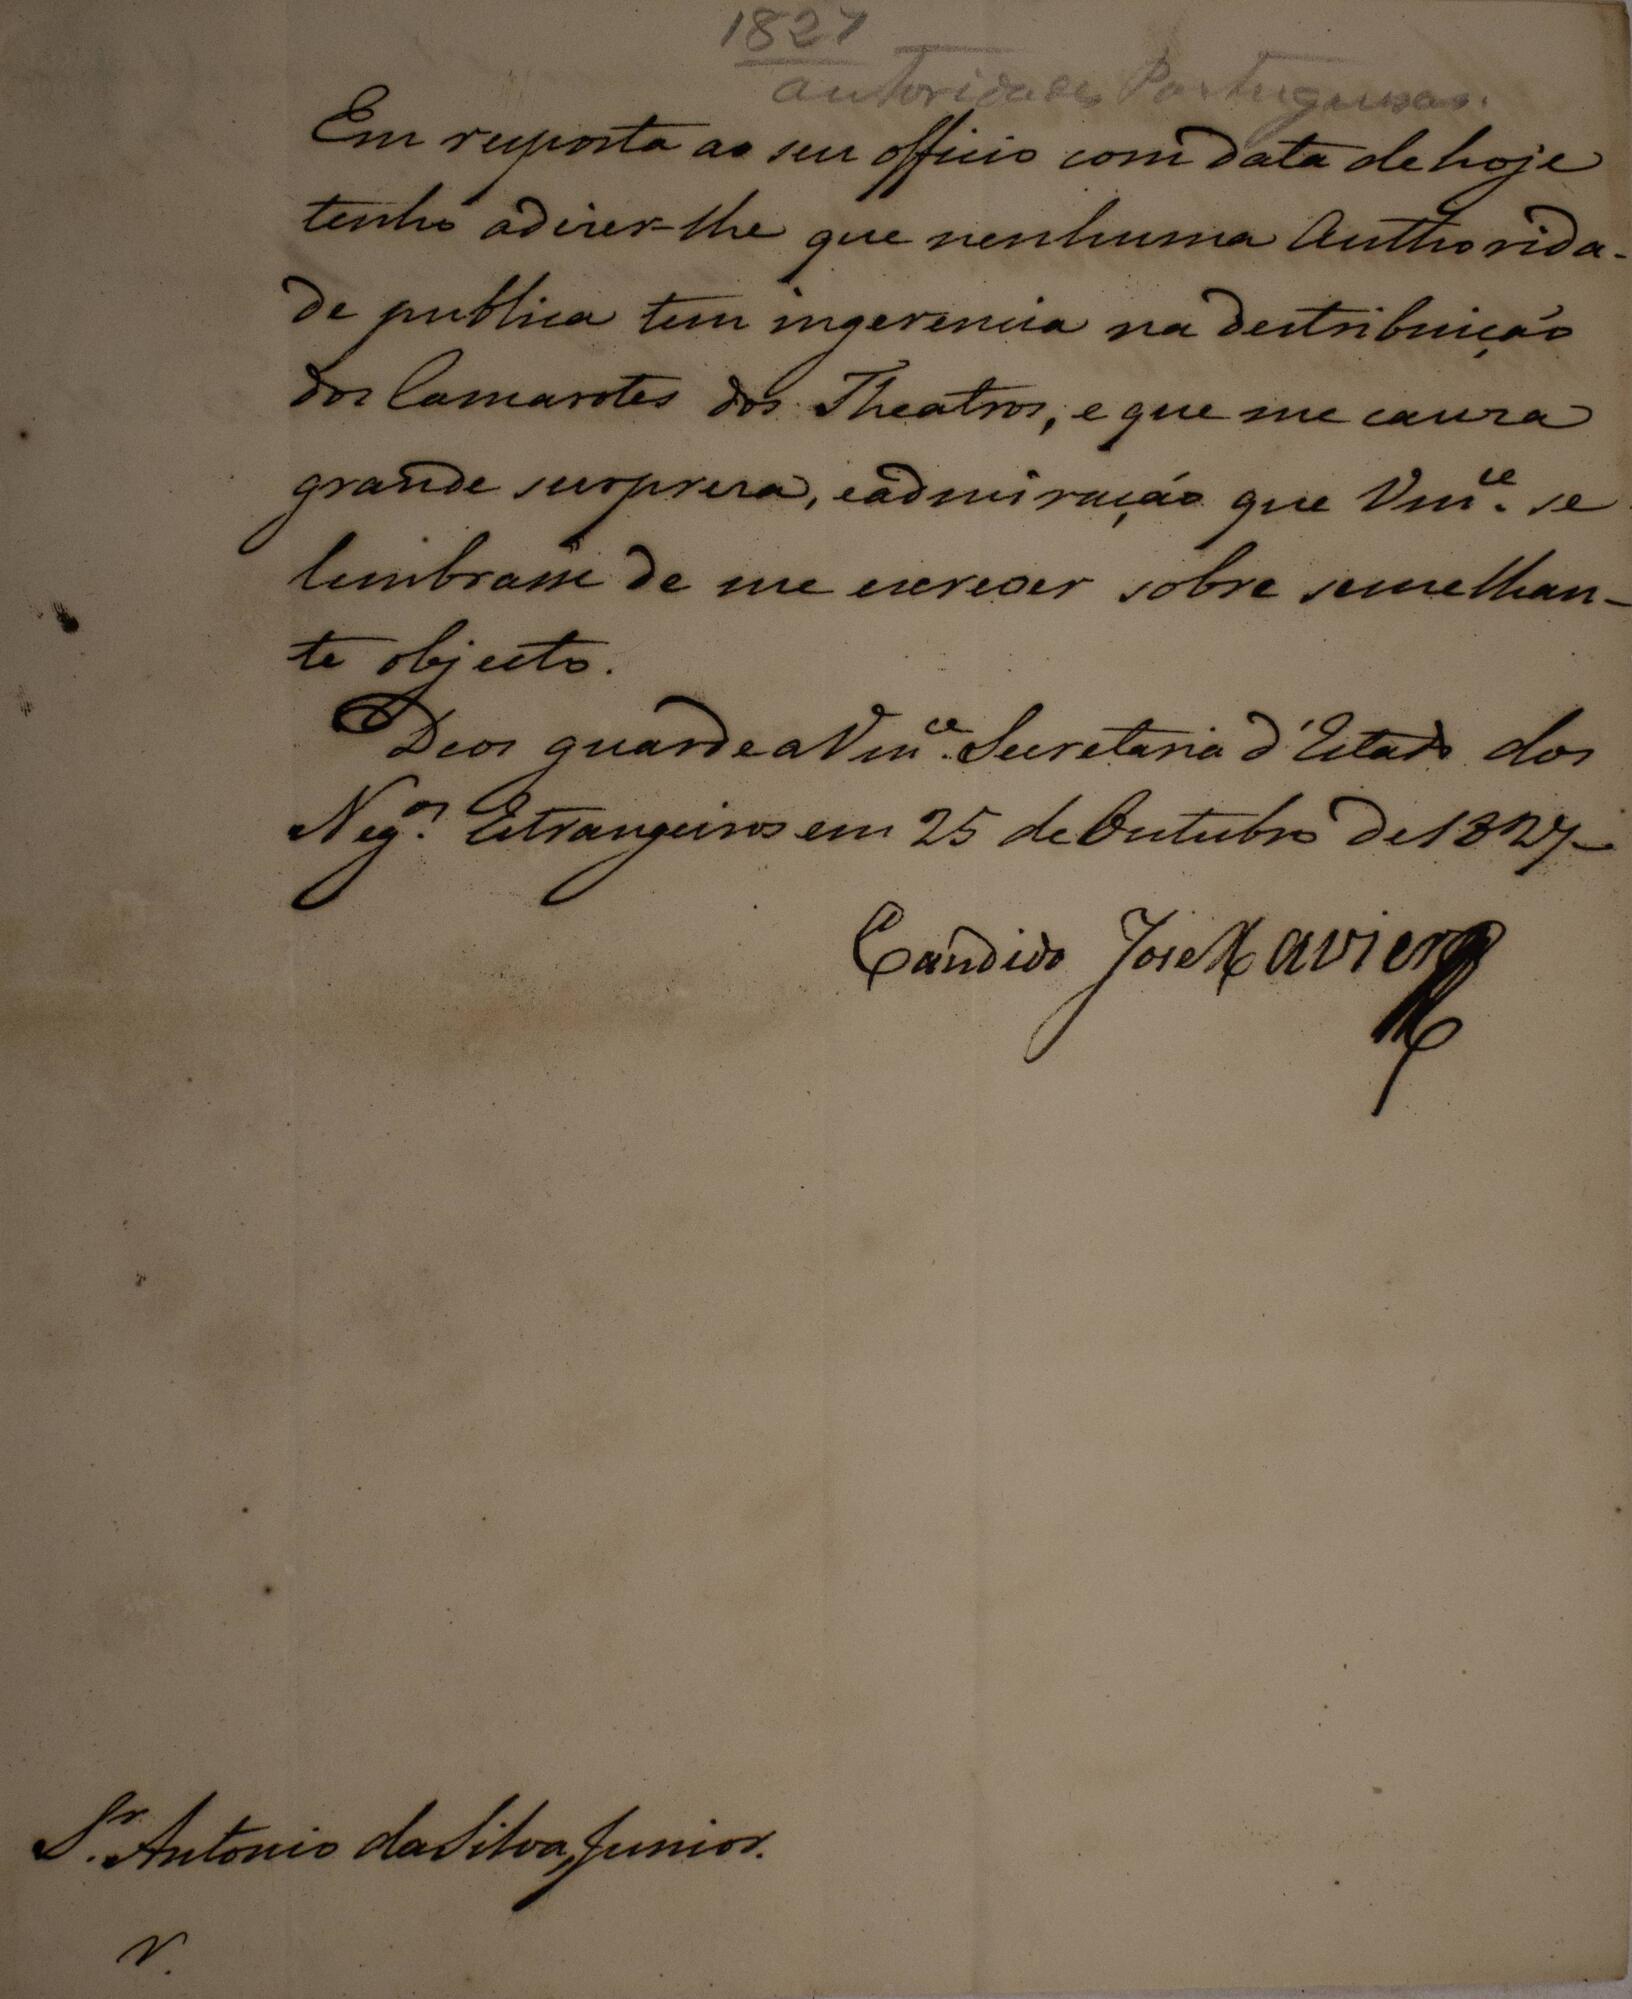 1827
autoridades Portuguesas.
Em resposta ao seu officio com data de hoje
tenho adizer-lhe que nenhuma Authorida-
de publica tem ingerencia na destribuição
dos Camarotes dos Theatros, e que me causa
grande surpresa, eadmiração que Vm.ce se
lembrasse de me escrever sobre semelhan-
te objecto.
Deos guarde a Vm.ce Secretaria d'Estado dos
Neg.os Estrangeiros em 25 de Outubro de 1827
Candido Jose Xavier
Sr. Antonio da Silva Junior.